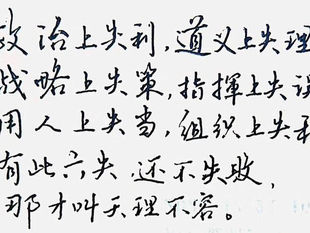 政治上失利,道义上失理
战略上失策,指挥上失误
用人上失当,组织上失
有此六失,还不失败,
那才叫天理不容。